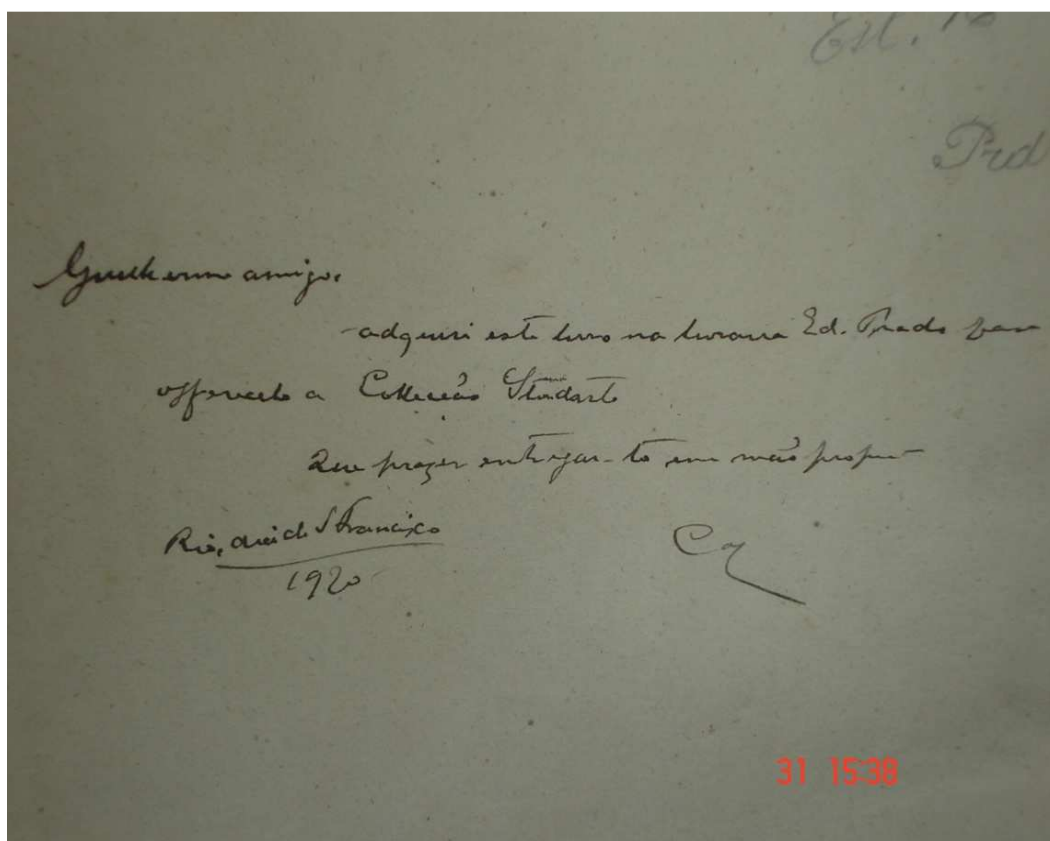 Est.
Prd
Guilherme amigo.
adquiri este livro na livraria Ed. Prado para
offerecel-o a Collecção Studart
Que prazer entregar-to em mão propria
Rio, dia de S Francisco
1920
31 15:38